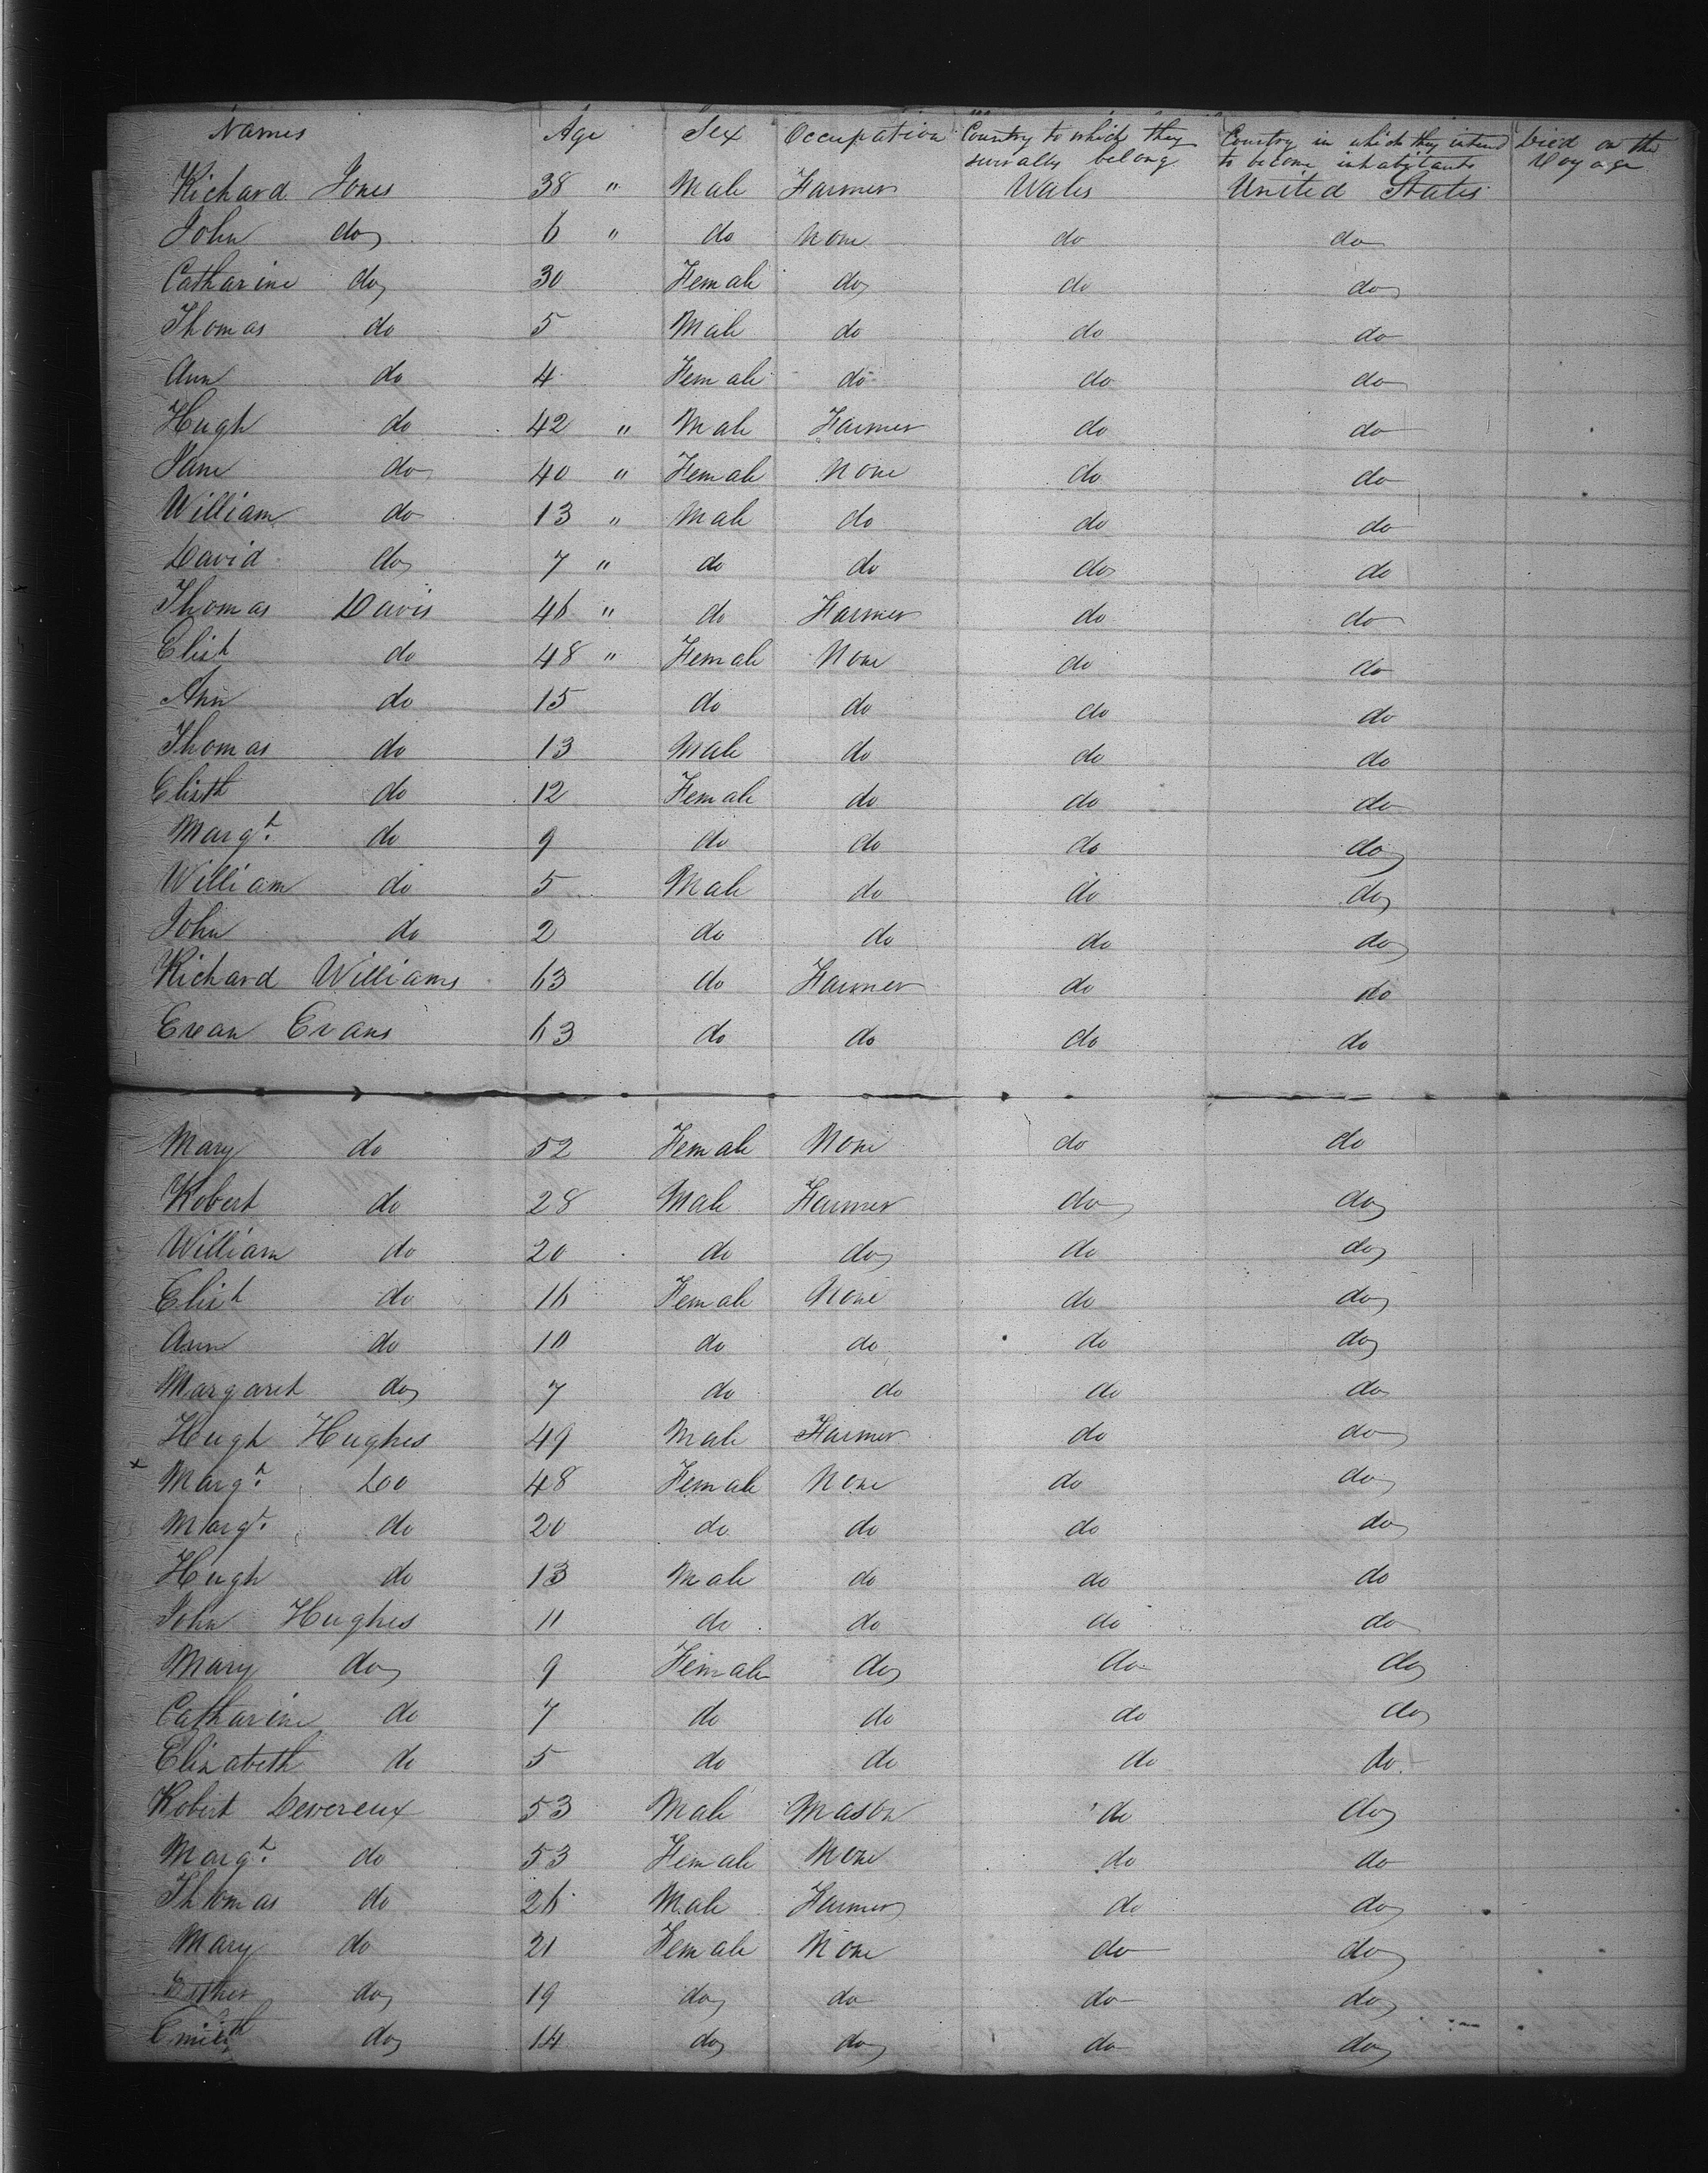 Names Age Sex Occupation Country to which they severally belong Country in which they intend to become inhabitants Died on the Voyage
Richard Jones 38 " Male Farmer Wales United States
John do 6 " do None do do
Catharine do 30 Female do do do
Thomas do 5 Male do do do
Ann do 4 Female do do do
Hugh do 42 " Male Farmer do do
Jane do 40 " Female None do do
William do 13 " Male do do do
David do 7 " do do do do
Thomas Davis 46 " do Farmer do do
Elizh do 48 " Female None do do
Ann do 15 do do do do
Thomas do 13 Male do do do
Elizth do 12 Female do do do
Margt. do 9 do do do do
William do 5 Male do do do
John do 2 do do do do
Richard Williams 63 do Farmer do do
Evean Evans 63 do do do do
Mary do 52 Female None do do
Robert do 28 Male Farmer do do
William do 20 do do do do
Elizh do 16 Female None do do
Ann do 10 do do do do
Margaret do 7 do do do do
Hugh Hughes 49 Male Farmer do do
x Margt. Do 48 Female None do do
Margt. do 20 do do do do
Hugh do 13 Male do do do
John Hughes 11 do do do do
Mary do 9 Female do do do
Catharine do 7 do do do do
Elizabeth do 5 do do do do
Robert Devereux 53 Male Mason do do
Margt. do 53 Female None do do
Thomas do 26 Male Farmer do do
Mary do 21 Female None do do
Esther do 19 do do do do
do 14 do do do do